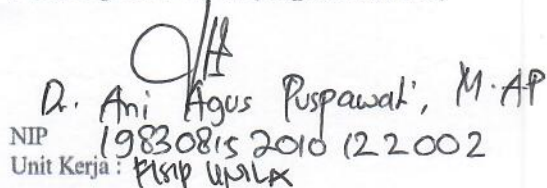 Dr. Ani Agus Puspawati, M.AP
NIP 19830815 2010 12 2 002
Unit Kerja : FISIP UNILA